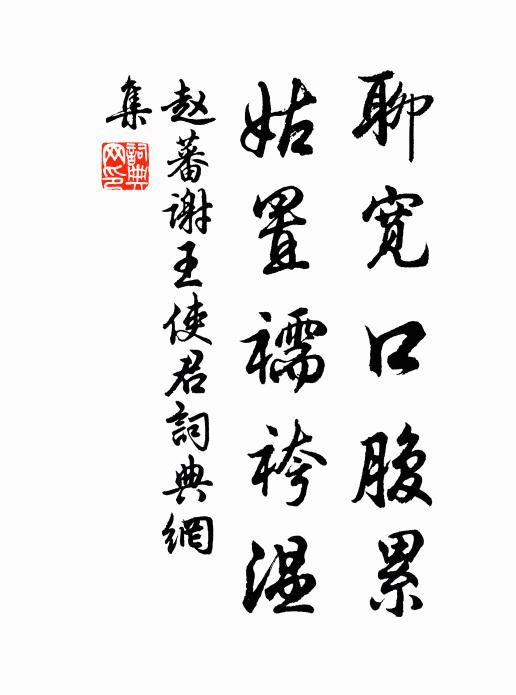 聊宽口腹累
姑置襦袴温
赵蕃谢王使君詞典網
集
詞典
网印